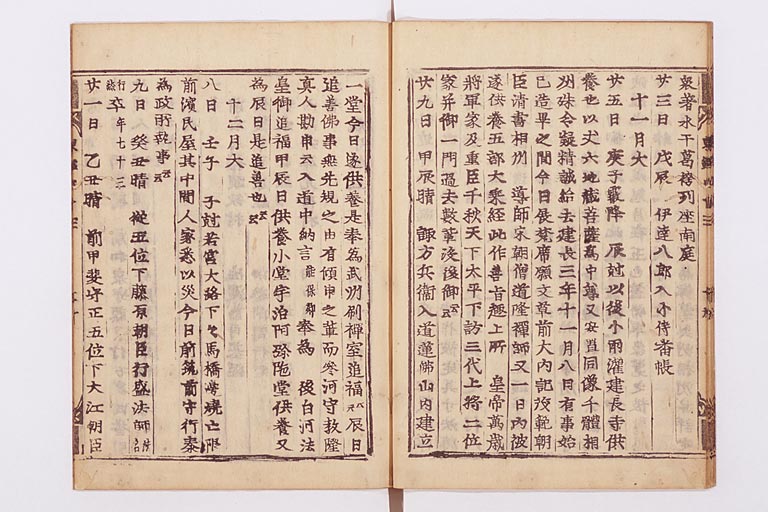 衆著水干葛袴列座南庭
廿三日 戊辰 伊達八郎入小侍番帳
十一月大
廿五日 庚子霰降 辰尅以後小雨灌建長寺供
養也以丈六地蔵菩薩為中尊又安置同像千體相
州殊令凝精誠給去建長三年十一月八日有事始
已造畢之間今日展梵席願文章前大内記茂範朝
臣清書相州 導師宋朝僧道隆禅師又一日内被
遂供養五部大乗経此作善旨趣上祈 皇帝萬歳
將軍家及重臣千秋天下太平下訪三代上將二位
家并御一門過去數輩没後御云々
廿九日 甲辰晴 諏方兵衛入道蓮佛山内建立
一堂今日遂供養是奉為武州刺禅室追福云々辰日
追善佛事無先規之由有傾申之輩而参河守教隆
真人勘申云入道中納言能保卿奉為 後白河法
皇御追福甲辰日供養小堂宇治阿弥陁堂供養又
為辰日是追善也云々
十二月大
八日 壬子 子尅若宮大路下々馬橋邊焼亡限
前濱民屋其中間人家悉以災今日前筑前守行泰
為政所執事云々
九日 癸丑晴 從五位下藤原朝臣行盛法師法名
行然卒年七十三
廿一日 乙丑晴 前甲斐守正五位下大江朝臣